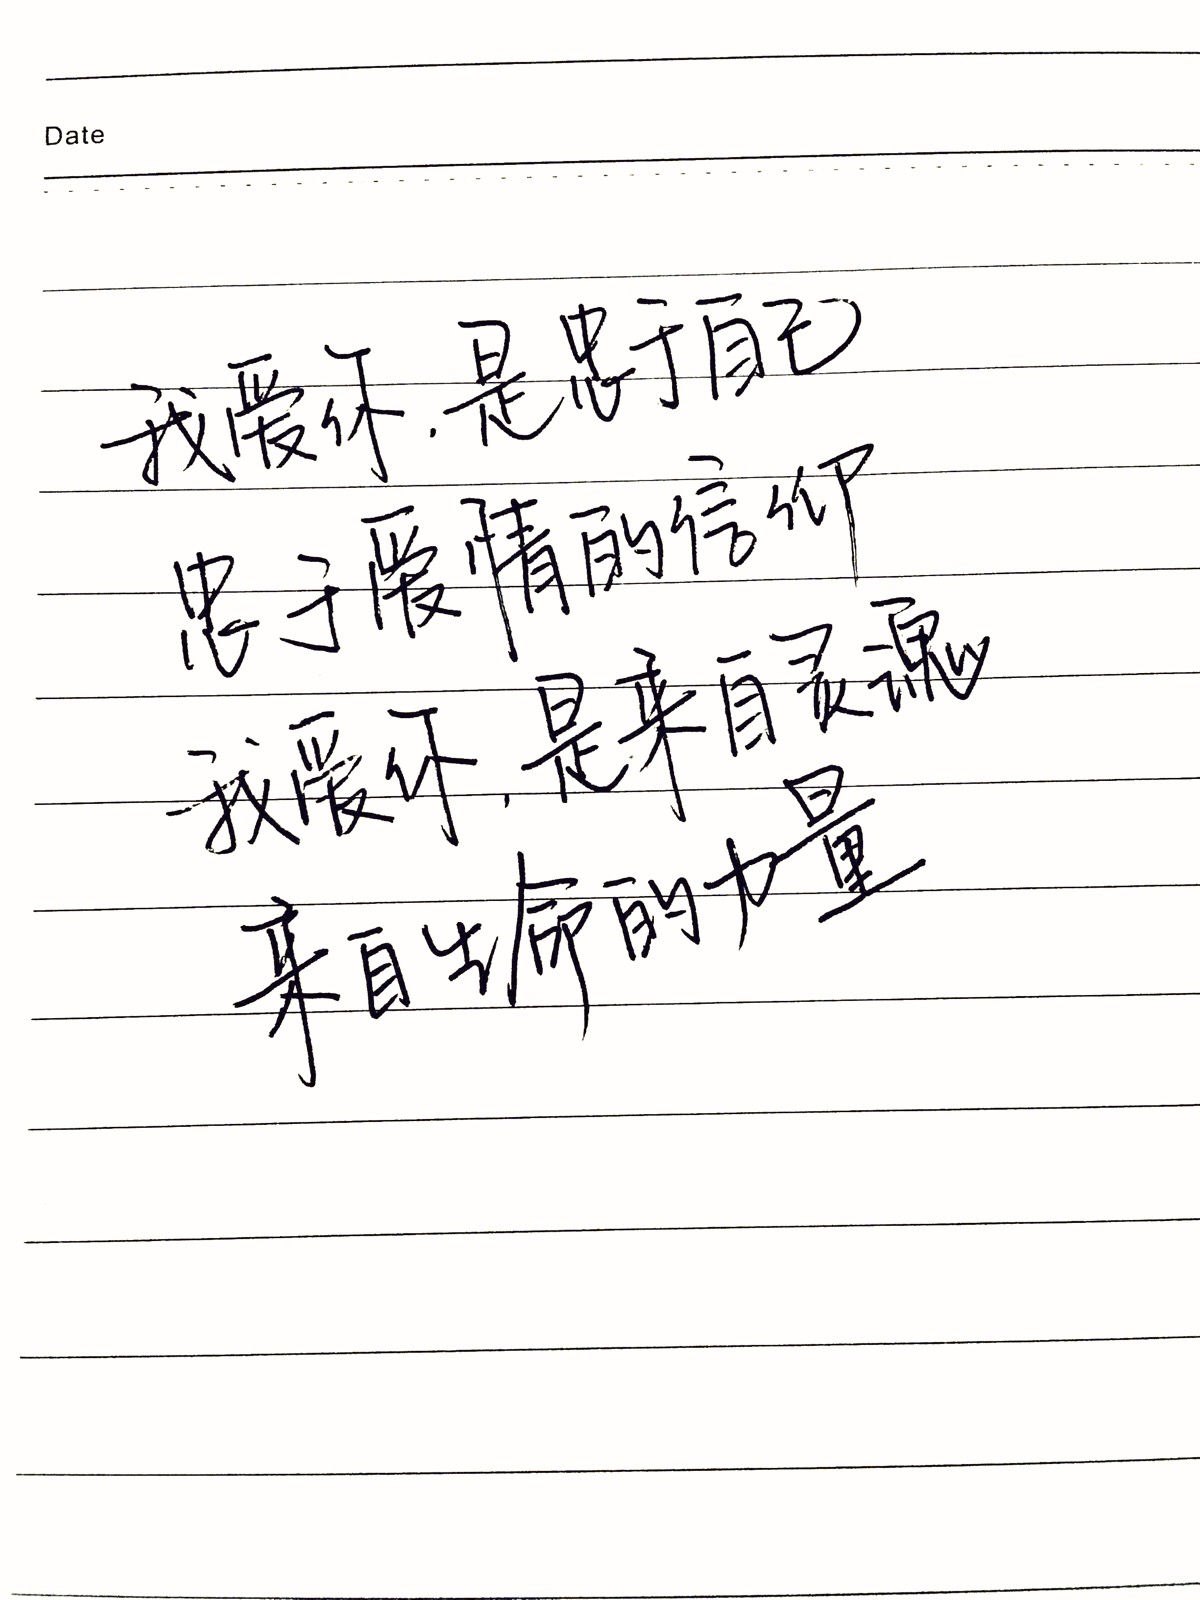 Date
我爱你.是忠于自己
忠于爱情的信仰
我爱你.是来自灵魂
来自生命的力量